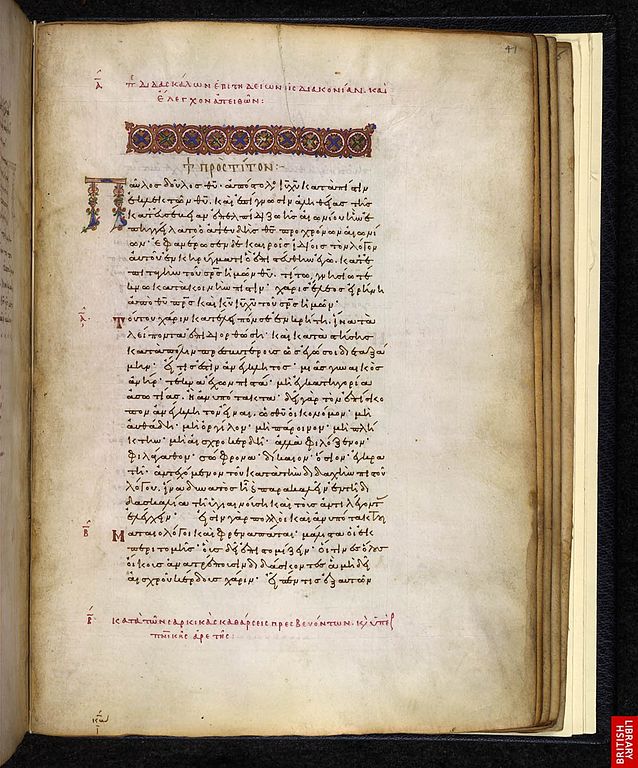 41
ᾱ π διδασκάλων ἐπιτηδείων εἰς διακονίαν. καὶ
ἔλεγχον ἀπειθῶν:
πρὸς τίτον:-
Παῦλος δοῦλος θ̅υ̅· ἀπόστολος ι̅υ̅ χ̅υ̅ κατὰ πίστιν
ἐκλεκτῶν θ̅υ̅. καὶ ἐπίγνωσιν ἀληθείας τῆς
κατ' εὐσέβειαν ἐπ' ἐλπίδι ζωῆς αἰωνίου ἣν ἐ
πηγγείλατο ὁ ἀψευδὴς θ̅ς̅ πρὸ χρόνων αἰωνί
ων· ἐφανέρωσεν δὲ καιροῖς ἰδίοις τὸν λόγον
αὐτοῦ ἐν κηρύγματι ὃ ἐπιστεύθην ἐγώ. κατ' ἐ
πιταγὴν τοῦ σ̅ρ̅ς̅ ἡμῶν θ̅υ̅. τίτω, γνησίω τέ
κνω κατὰ κοινὴν πίστιν· χάρις ἔλεος εἰρήνη
ἀπὸ θ̅υ̅ π̅ρ̅ς̅ καὶ κ̅υ̅ ι̅υ̅ χ̅υ̅ τοῦ σ̅ρ̅ς̅ ἡμῶν·
ᾱ Τούτου χάριν κατέλειπόν σε ἐν κρήτη. ἵνα τὰ
λείποντα ἐπιδιορθώση· καὶ καταστήσης
κατὰ πόλιν πρεσβυτέρους ὡς ἐγώ σοι διεταξά
μην· εἴ τις ἐστὶν ἀνέγκλητος· μιᾶς γυναικὸς
ἀνήρ· τέκνα ἔχων πιστά· μὴ ἐν κατηγορία
ἀσωτίας. ἢ ἀνυπότακτα· δεῖ γὰρ τὸν ἐπίσκο
πον ἀνέγκλητον εἶναι. ὡς θ̅υ̅ οἰκονόμον· μὴ
αὐθάδη· μὴ ὀργίλον· μὴ πάροινον· μὴ πλή
κτην· μὴ αἰσχροκερδῆ· ἀλλὰ φιλόξενον·
φιλάγαθον· σώφρονα· δίκαιον· ὅσιον· ἐγκρα
τῆ· ἀντεχόμενον τοῦ κατὰ τὴν διδαχὴν πιστοῦ
λόγου. ἵνα δυνατὸς ἦ καὶ παρακαλεῖν ἐν τῆ δι
δασκαλία τῆ ὑγιαινούση καὶ τοὺς ἀντιλέγοντ
ἐλέγχειν· εἰσὶν γὰρ πολλοὶ καὶ ἀνυπότακτοι
β̄ Ματαιολόγοι καὶ φρεναπάται· μάλιστα οἱ ἐκ
περιτομῆς· οὓς δεῖ ἐπιστομίζειν· οἵτινες ὅλους
οἴκους ἀνατρέπουσιν διδάσκοντες ἃ μὴ δεῖ
αἰσχροῦ κέρδους χάριν· εἶπέν τις ἐξ αὐτῶν
β̄ κατὰ τῶν σαρκικὰς καθάρσεις πρεσβευόντων. κ ὑπὲρ
π̅ν̅ικῆς ἀρετῆς:
LIBRARY
BRITISH